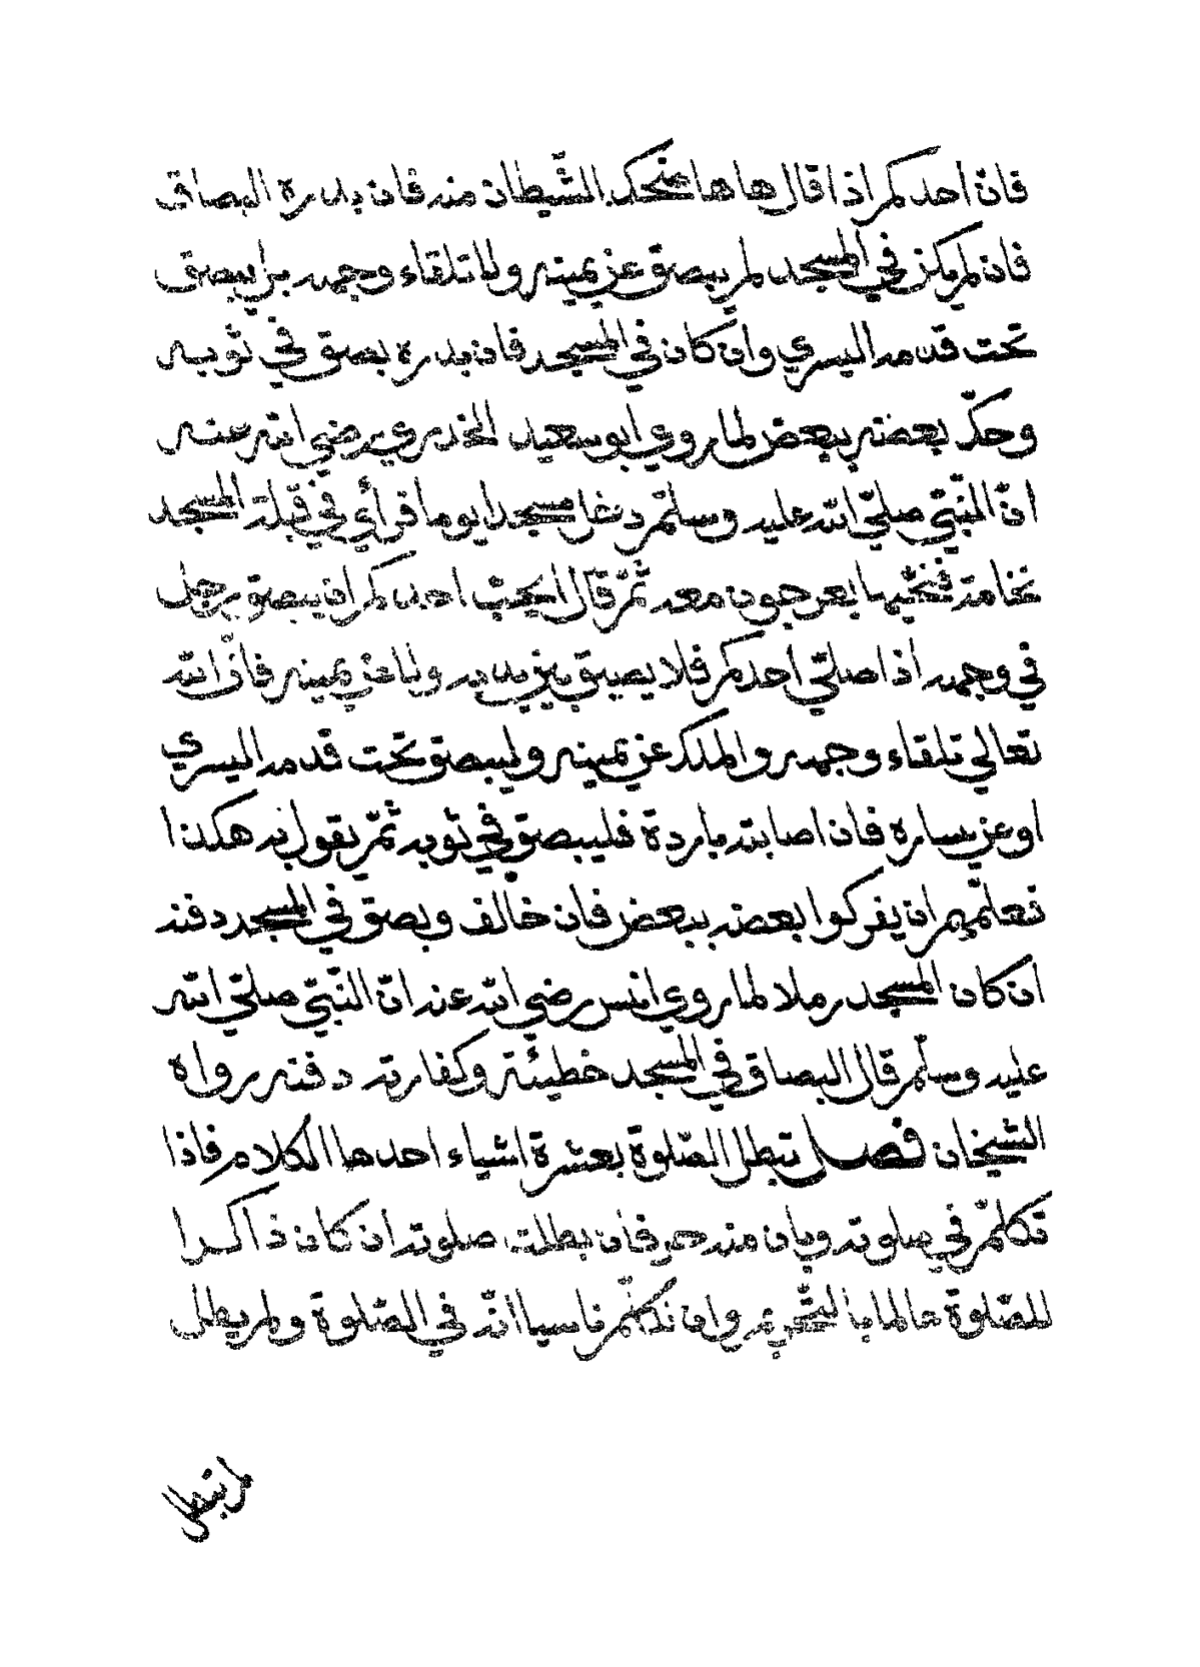 فانّ احدكم اذا قال ها ها يضحك الشّيطان منه فان بدره البصاق
فان لم يكن في المسجد لم يبصق عن يمينه ولا تلقاء وجهه بل يبصق
تحت قدمه اليسري وان كان في المسجد فان بدره بصق في ثوبه
وحكّ بعضه ببعض لما روي ابو سعيد الخدري رضي الله عنه
انّ النّبيّ صلّي الله عليه وسلّم دخل مسجدا يوما فرأي في قبلة المسجد
نخامة فنحّيها بعرجون معه ثمّ قال ايحبّ احدكم ان يبصق رجل
في وجهه اذا صلّي احدكم فلا يبصق بين يديه ولا عن يمينه فانّ الله
تعالي تلقاء وجهه والملك عن يمينه وليبصق تحت قدمه اليسري
او عن يساره فان اصابته بادرة فليبصق في ثوبه ثمّ يقول به هكذا
فعلّمهم ان يفركوا بعضه ببعض فان خالف وبصق في المسجد دفنه
ان كان المسجد رملا لما روي انس رضي الله عنه انّ النّبيّ صلّي الله
عليه وسلّم قال البصاق في المسجد خطيئة وكفارته دفنه رواه
الشيخان فصل تبطل الصّلوة بعشرة اشياء احدها الكلام فاذا
تكلّم في صلوته وبان منه حرفان بطلت صلوته ان كان ذاكرا
للصّلوة عالما بالتّحريم وان تكلّم ناسيا انّه في الصّلوة ولم يطل